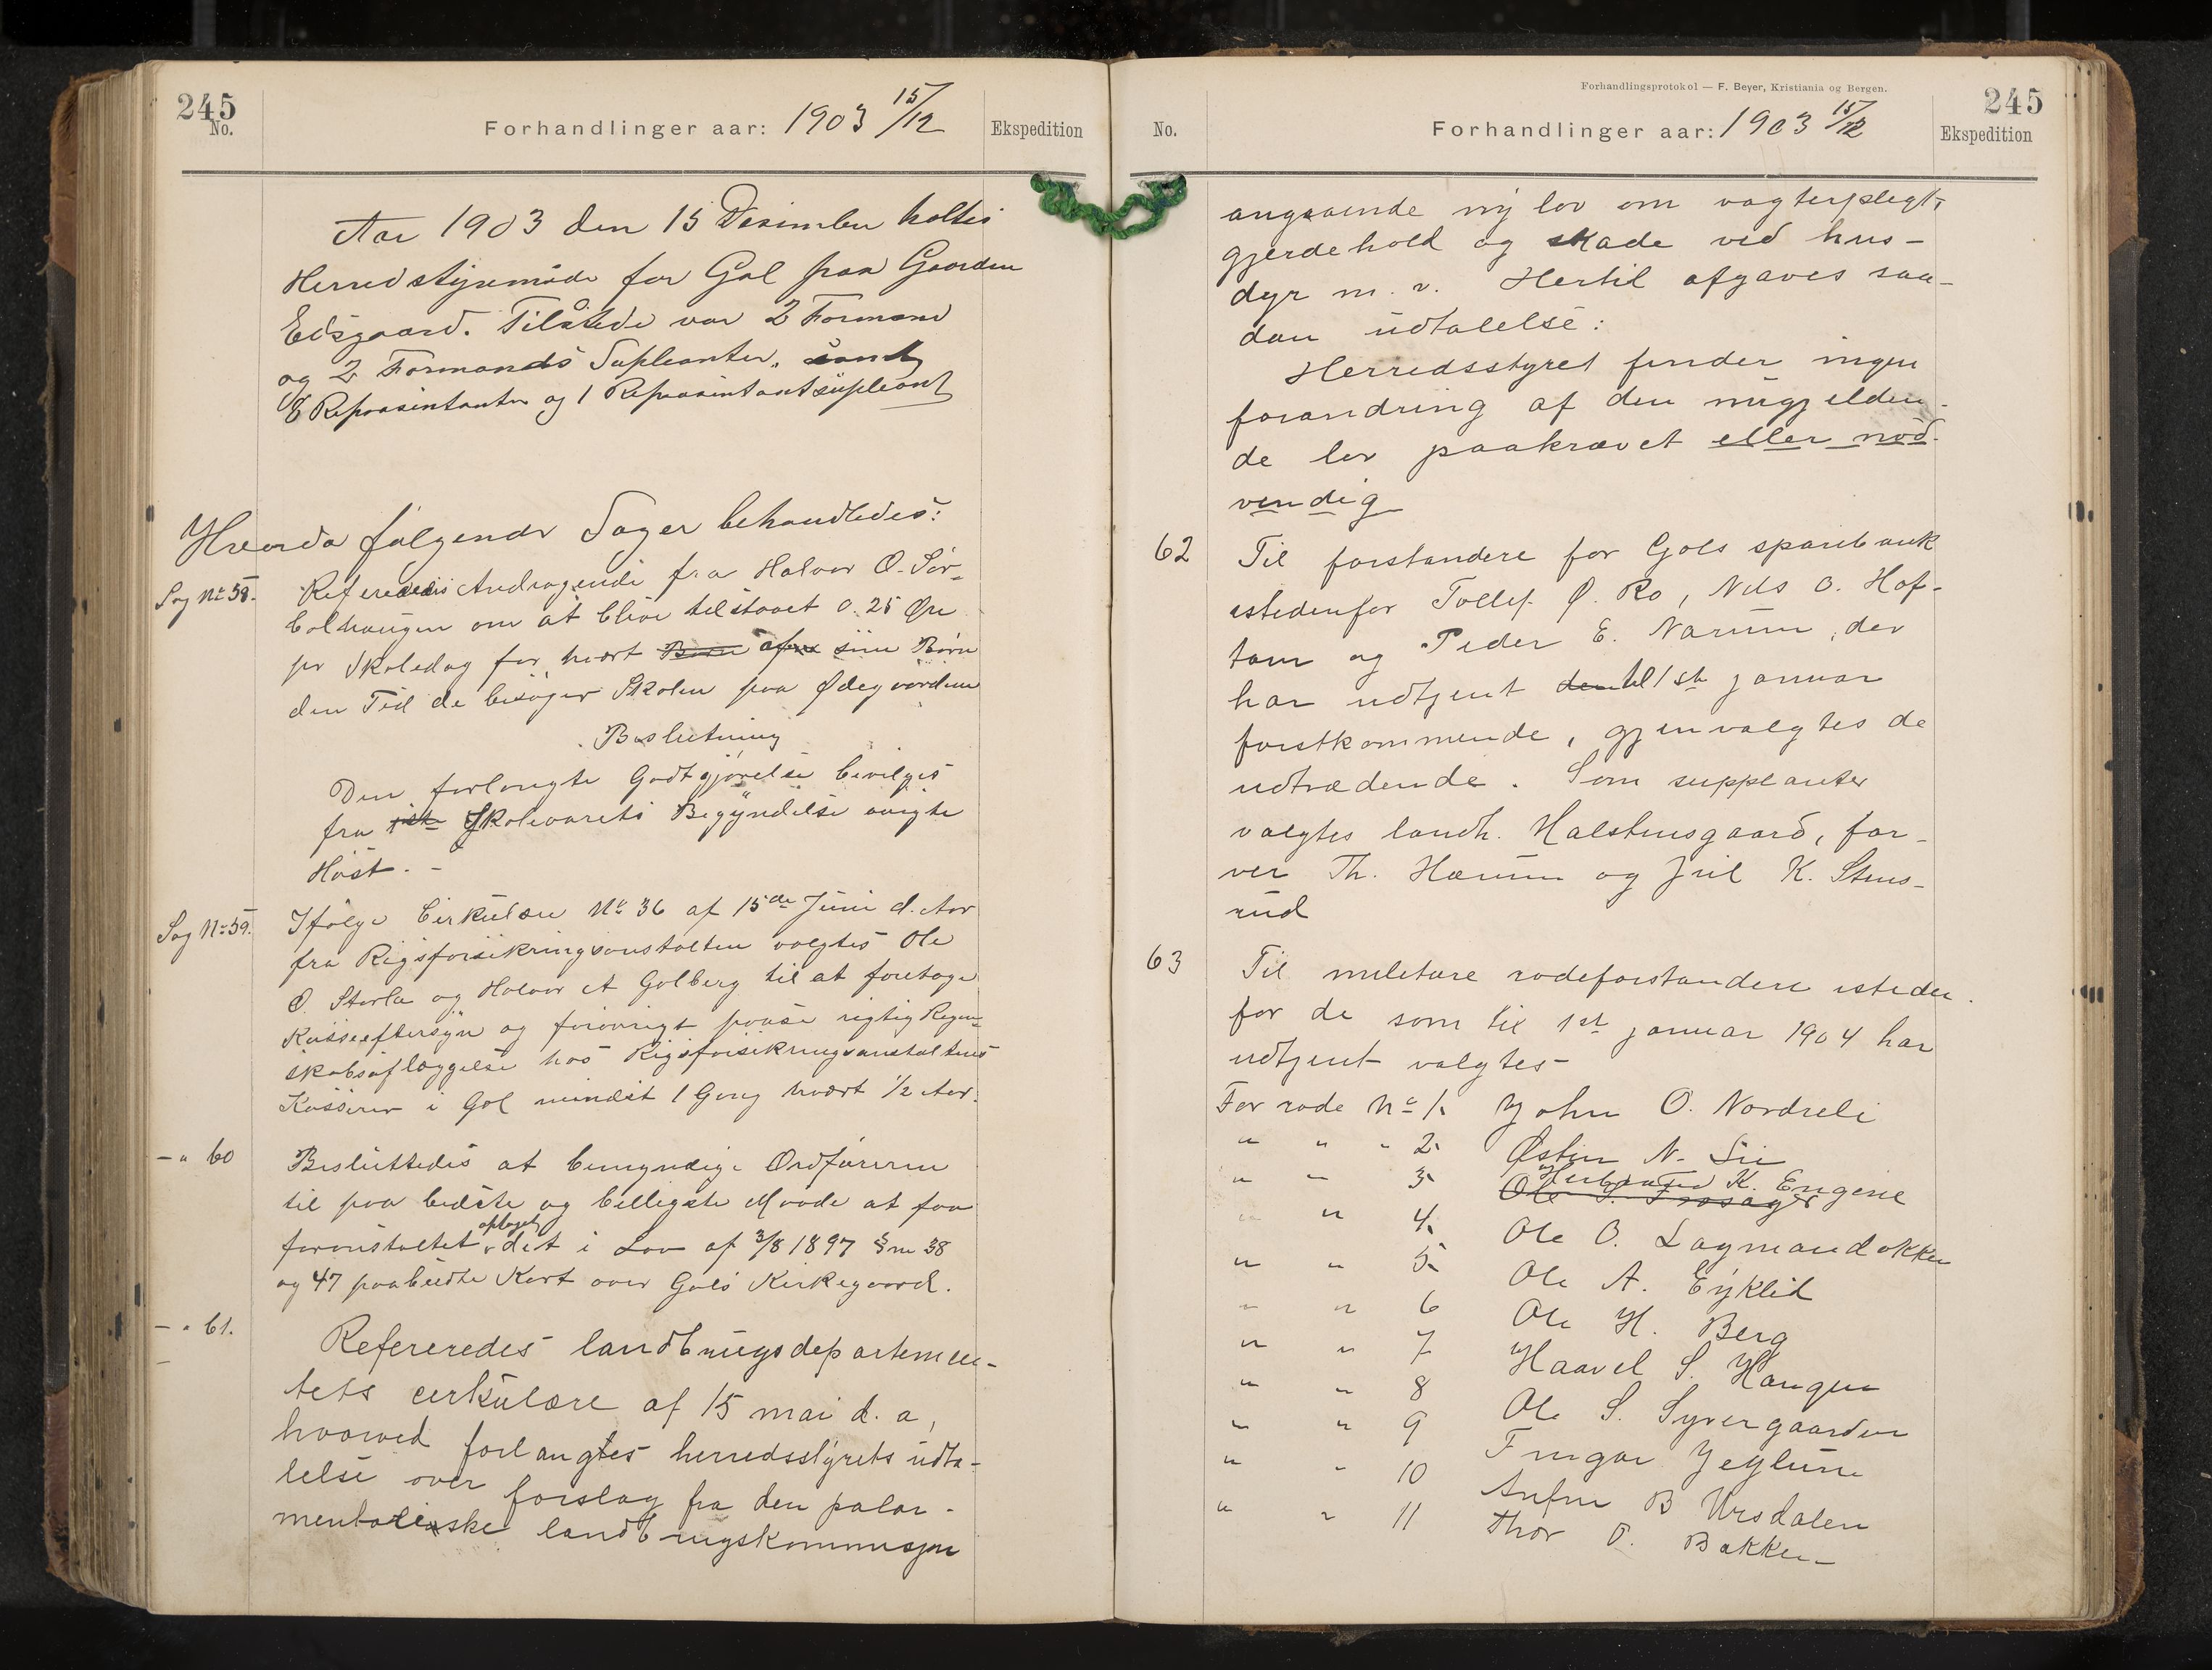 245
No.
Forhandlinger aar: 1903 15/12
Ekspedition
Aar 1903 den 15 Desimber holtes
Herredstyremøde for Gol paa Gaarden
Eidsgaard. Tilstede var 2 Formænd
og 2 Formands Supleanter, samt
8 Repræsintanter og 1 Repræsintantsupleant
Hvorda følgende Sager behandledes:
Sag No 58.
Refereredes Andragende fra Halvor O. Sør-
bolhaugen om at blive tilstaaet 0.25 Øre
pr Skoledag for hvært Børn af sine Børn
den Tid de besøger Skolen paa Ødegaarden
Beslutning
Den forlangte Godtgjørelse bevilges
fra 1ste Skoleaarets Begyndelse avigte
Høst. -
Sag No 59.
Ifølge Cirkulære No 36 af 15de Juni d. Aar
fra Rigsforsikringsanstalten valgtes Ole
O. Storla og Halvor A Golberg til at foretage
Kasseeftersyn og forøvrigt paase rigtig Regn-
skabsaflæggelse hos Rigsforsikringsanstaltens
Kasserer i Gol mindst 1 Gang hvært 1/2 Aar.
-"- 60
Besluttedes at bemyndige Ordføreren
til paa bedste og billigste Maade at faa
foranstaltet optaget det i Lov af 3/8 1897 §ne 38
og 47 paabudte Kart over Gols Kirkegaard.
-"- 61.
Refereredes landbrugsdepartemen-
tets cirkulære af 15 mai d. a,
hvorved forlangtes herredsstyrets udta-
lelse over forslag fra den palar-
mentariske landbrugskommisjon
Forhandlingsprotokol — F. Beyer, Kristiania og Bergen.
245
No.
Forhandlinger aar: 1903 15/12
Ekspedition
angaaende ny lov om vogterpligt,
gjerdehold og skade ved hus-
dyr m. v. Hertil afgaves saa-
dan udtalelse:
Herredsstyret finder ingen
forandring af den nugjelden-
de lov paakrævet eller nød-
vendig
62
Til forstandere for Gols sparebank
istedenfor Tollef O. Ro, Nils O. Hof-
tun og Peder E. Narum, der
har udtjent den til 1ste januar
førstkommende, gjenvalgtes de
udtrædende. Som suppleanter
valgtes landh. Halstensgaard, far-
ver Th. Hærum og Juil K. Stens-
rud
63
Til militære rodeforstandere isteden
for de som til 1st januar 1904 har
udtjent valgtes
For rode No 1. John O. Nordreli
" " " 2. Østen N. Lie
" " 3. Ole Herbrand K. Engene
" " 4. Ole O. Lagmandokken
" " 5. Ole A. Eyklid
" " 6 Ole H. Berg
" " 7 Haavel S. Haugen
" " 8 Ole S. Syvergaarden
" " 9 Fingar Jeglum
" " 10 Anfin B Ursdalen
" " 11 Thor O. Bakken